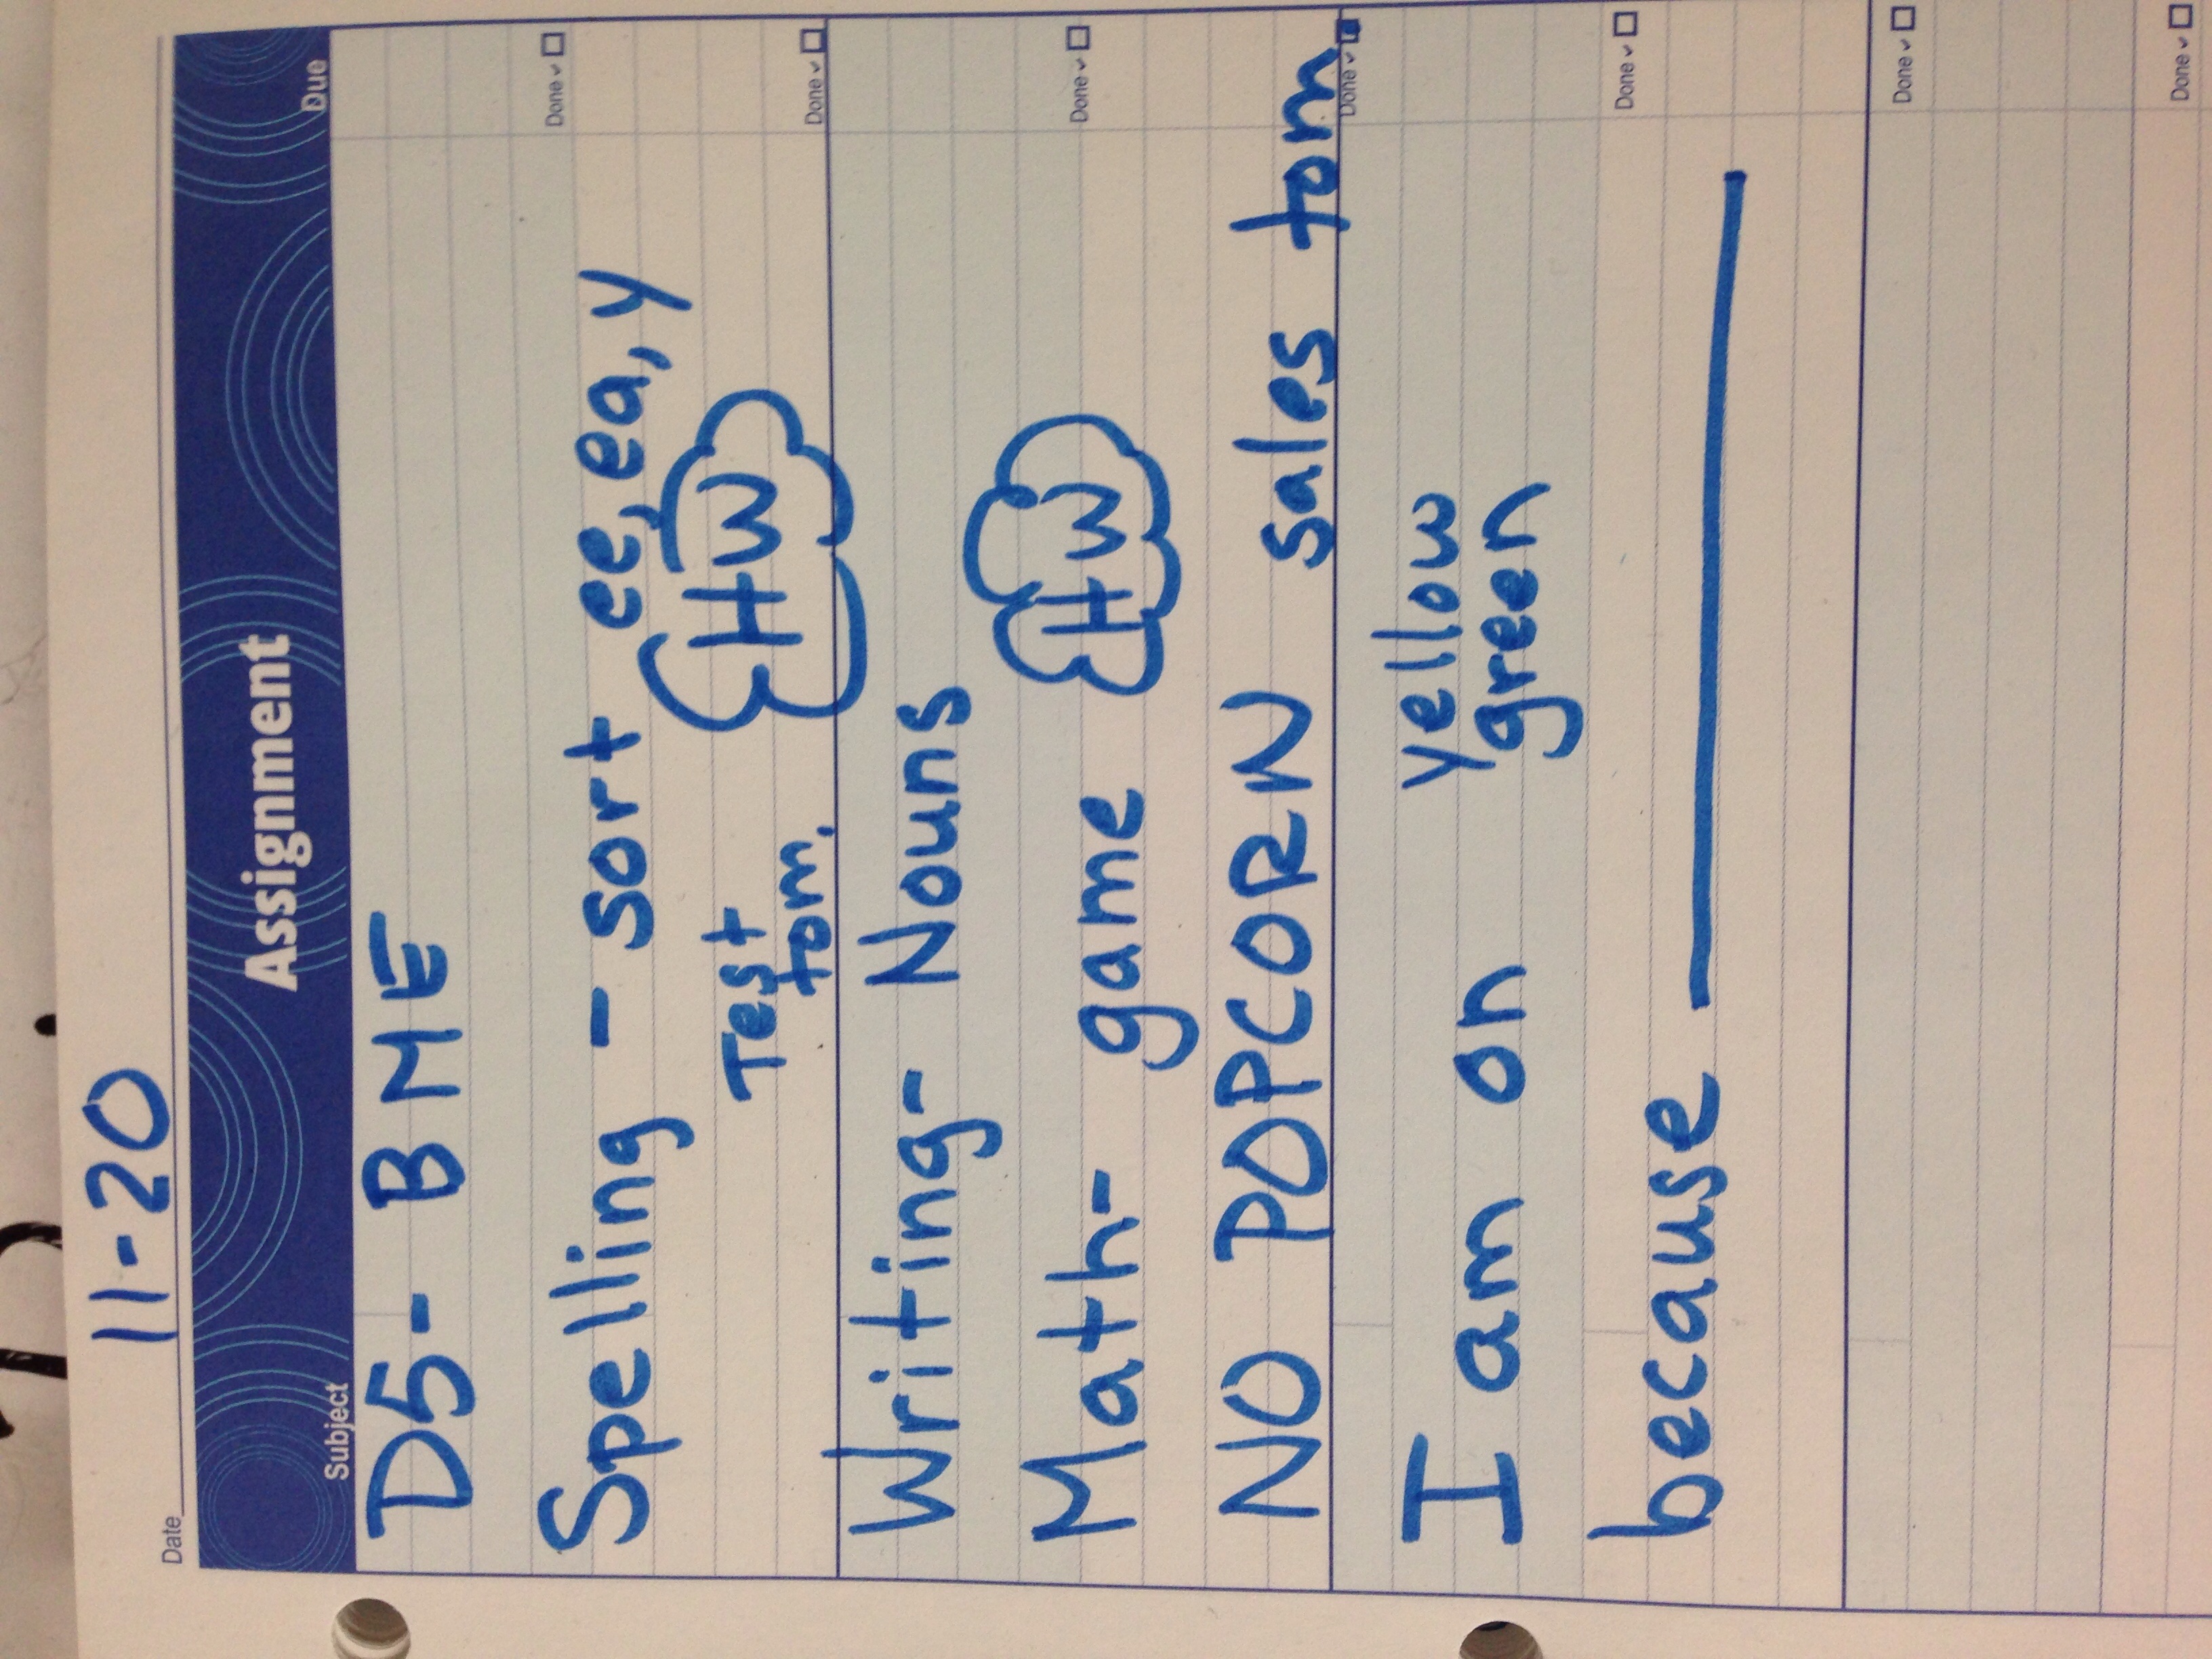 Date 11-20
Assignment
Subject Due
D5- BME
Done ✓
Spelling - sort ee, ea, y
Test HW
tom.
Done ✓
Writing- Nouns
Math- game HW
Done ✓
NO POPCORN sales tom
Done ✓
I am on yellow
green
because
Done ✓
Done ✓
Done ✓